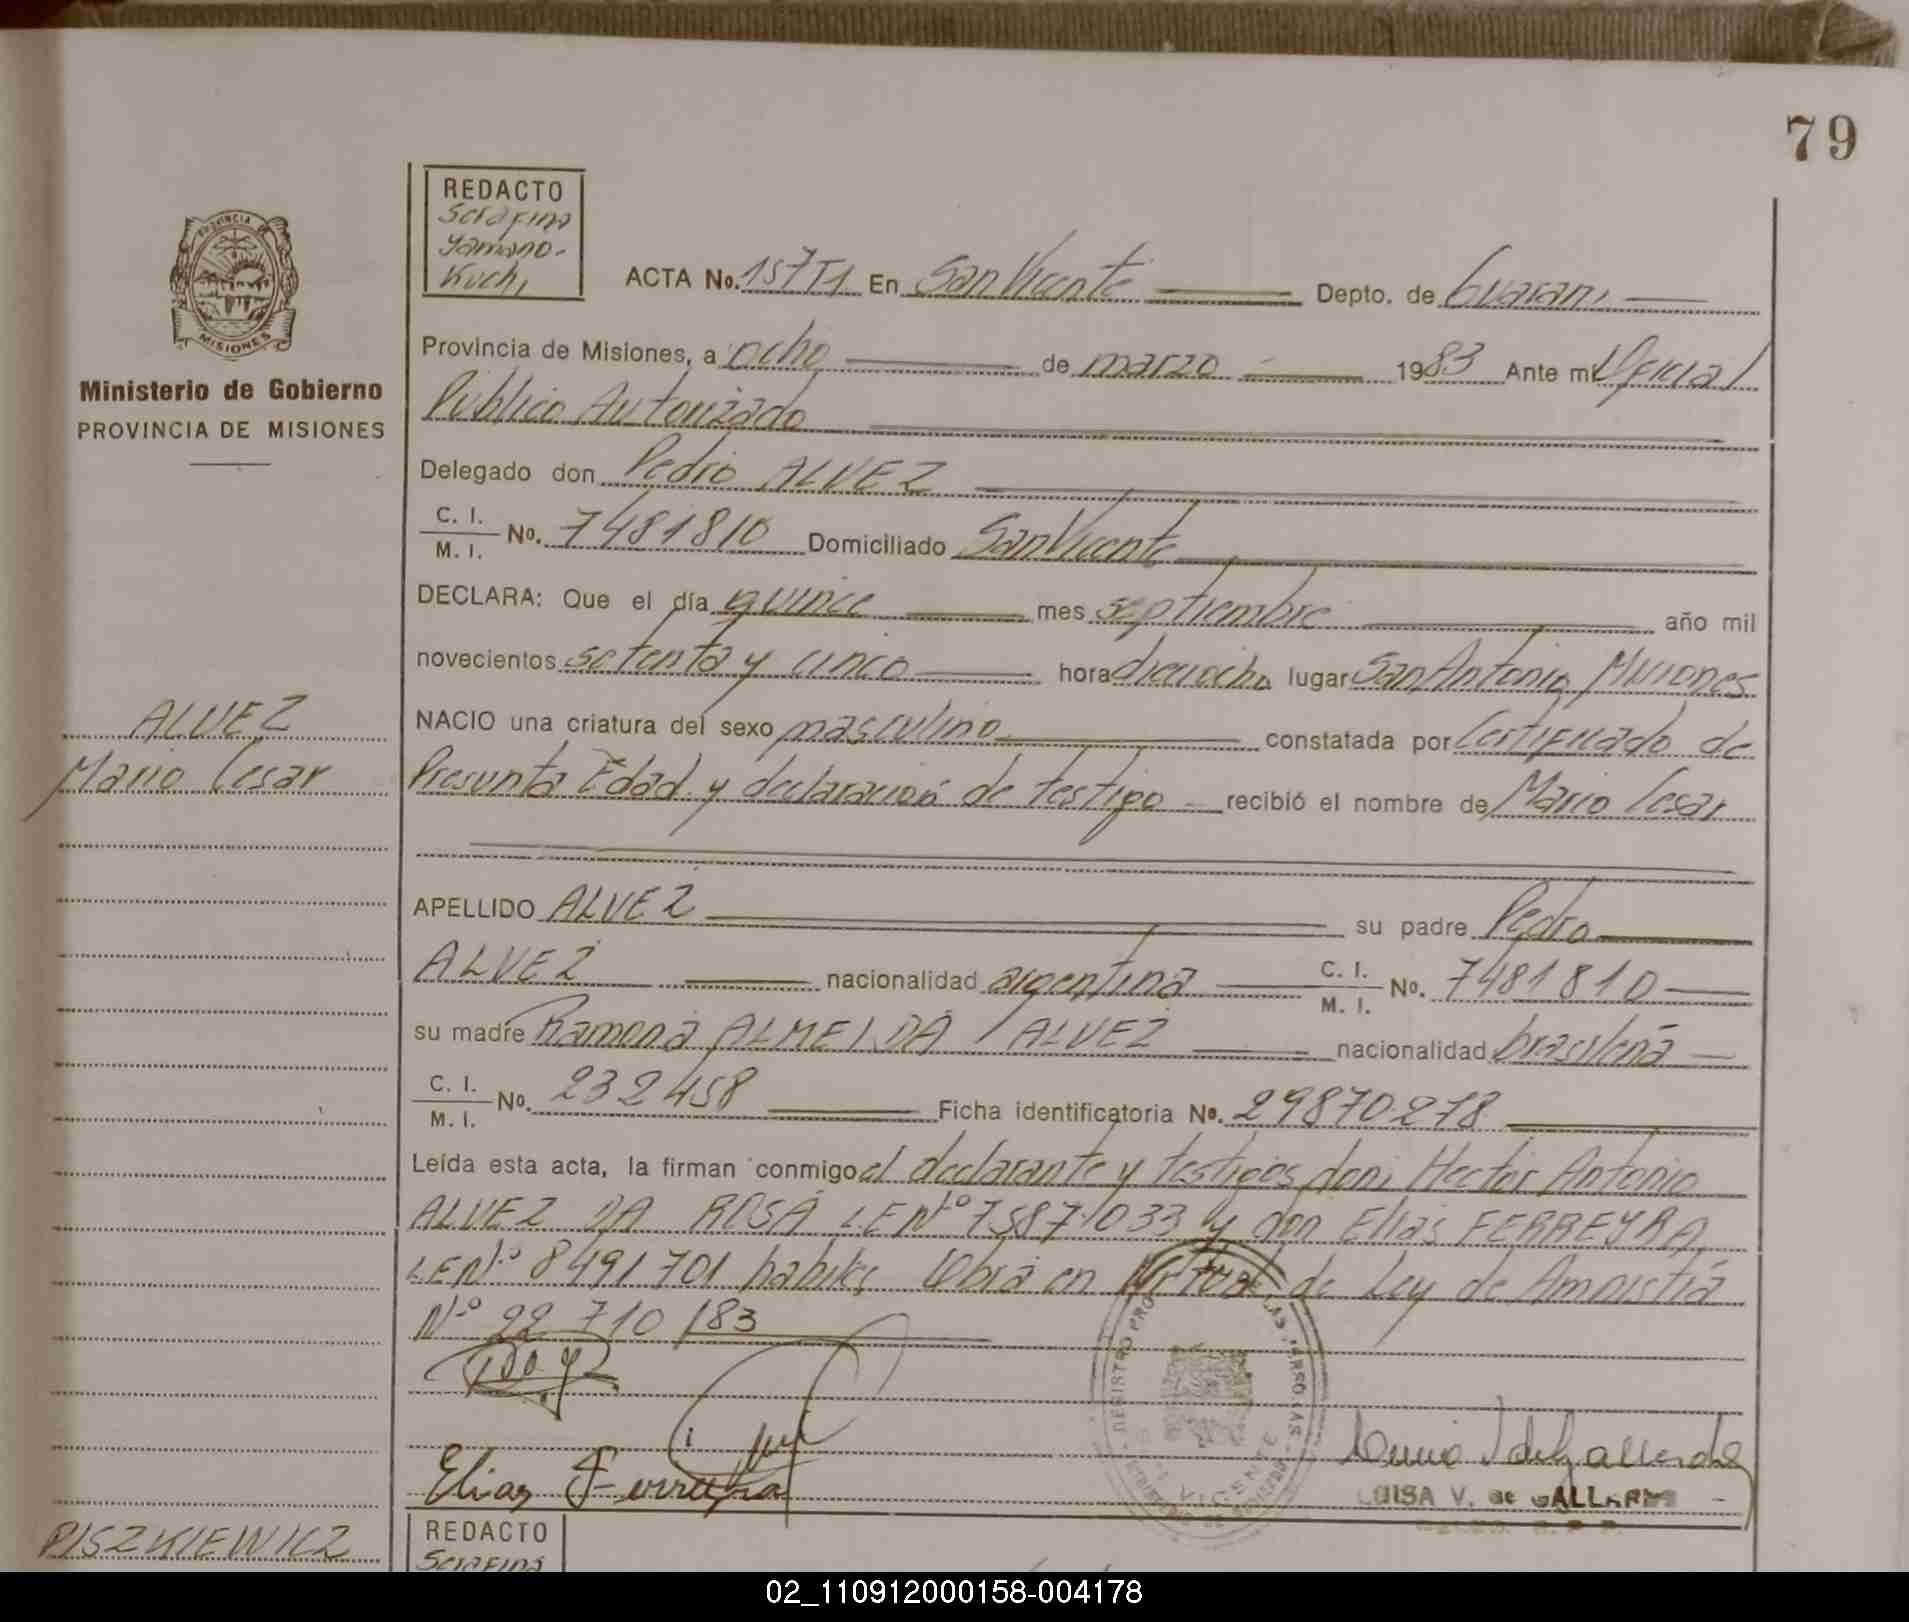 79
REDACTO
Serafina
Yamano-
Kuchi
PROVINCIA
MISIONES
Ministerio de Gobierno
PROVINCIA DE MISIONES
ACTA No. 157T1 En San Vicente Depto. de Guarani
Provincia de Misiones, a ocho de marzo 1983 Ante mi Oficial
Publico Autorizado
Delegado don Pedro ALVEZ
C. I. / M. I. No. 7481810 Domiciliado San Vicente
DECLARA: Que el día quince mes septiembre año mil
novecientos setenta y cinco hora dieciocho lugar San Antonio Misiones
ALVEZ
Mario Cesar
NACIO una criatura del sexo masculino constatada por Certificado de
Presunta Edad y declaración de testigo recibió el nombre de Mario Cesar
APELLIDO ALVEZ su padre Pedro
ALVEZ nacionalidad argentina C. I. / M. I. No. 7481810
su madre Ramona ALMEIDA / ALVEZ nacionalidad brasileña
C. I. / M. I. No. 232458 Ficha identificatoria No. 29870278
Leída esta acta, la firman conmigo el declarante y testigos don; Hector Antonio
ALVEZ DA ROSA L.E Nº 7587.033 y don Elias FERREYRA
L.E Nº 8491701 habiles Obra en Virtud de Ley de Amnistia
Nº 22 710 /83
Elias Ferreyra
VICENTE
LUISA V. de GALLARDO
PISZKIEWICZ
REDACTO
Serafina
02_110912000158-004178